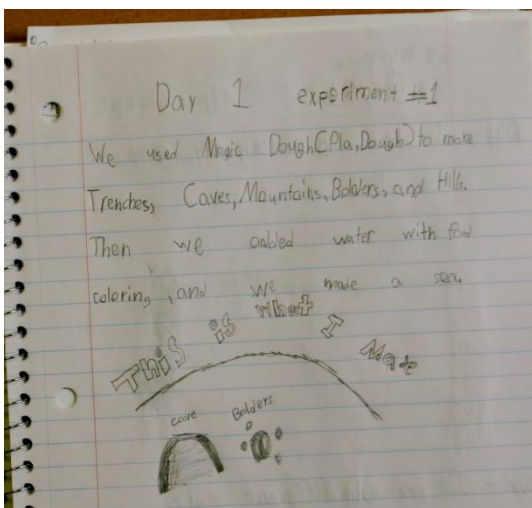 Day 1 experiment #1
We used Magic Dough(Pla,Dough) to make
Trenches, Caves, Mountains, Bolders, and Hills.
Then we added water with food
coloring, and we made a sea.
This is what I Mad
cave Bolders